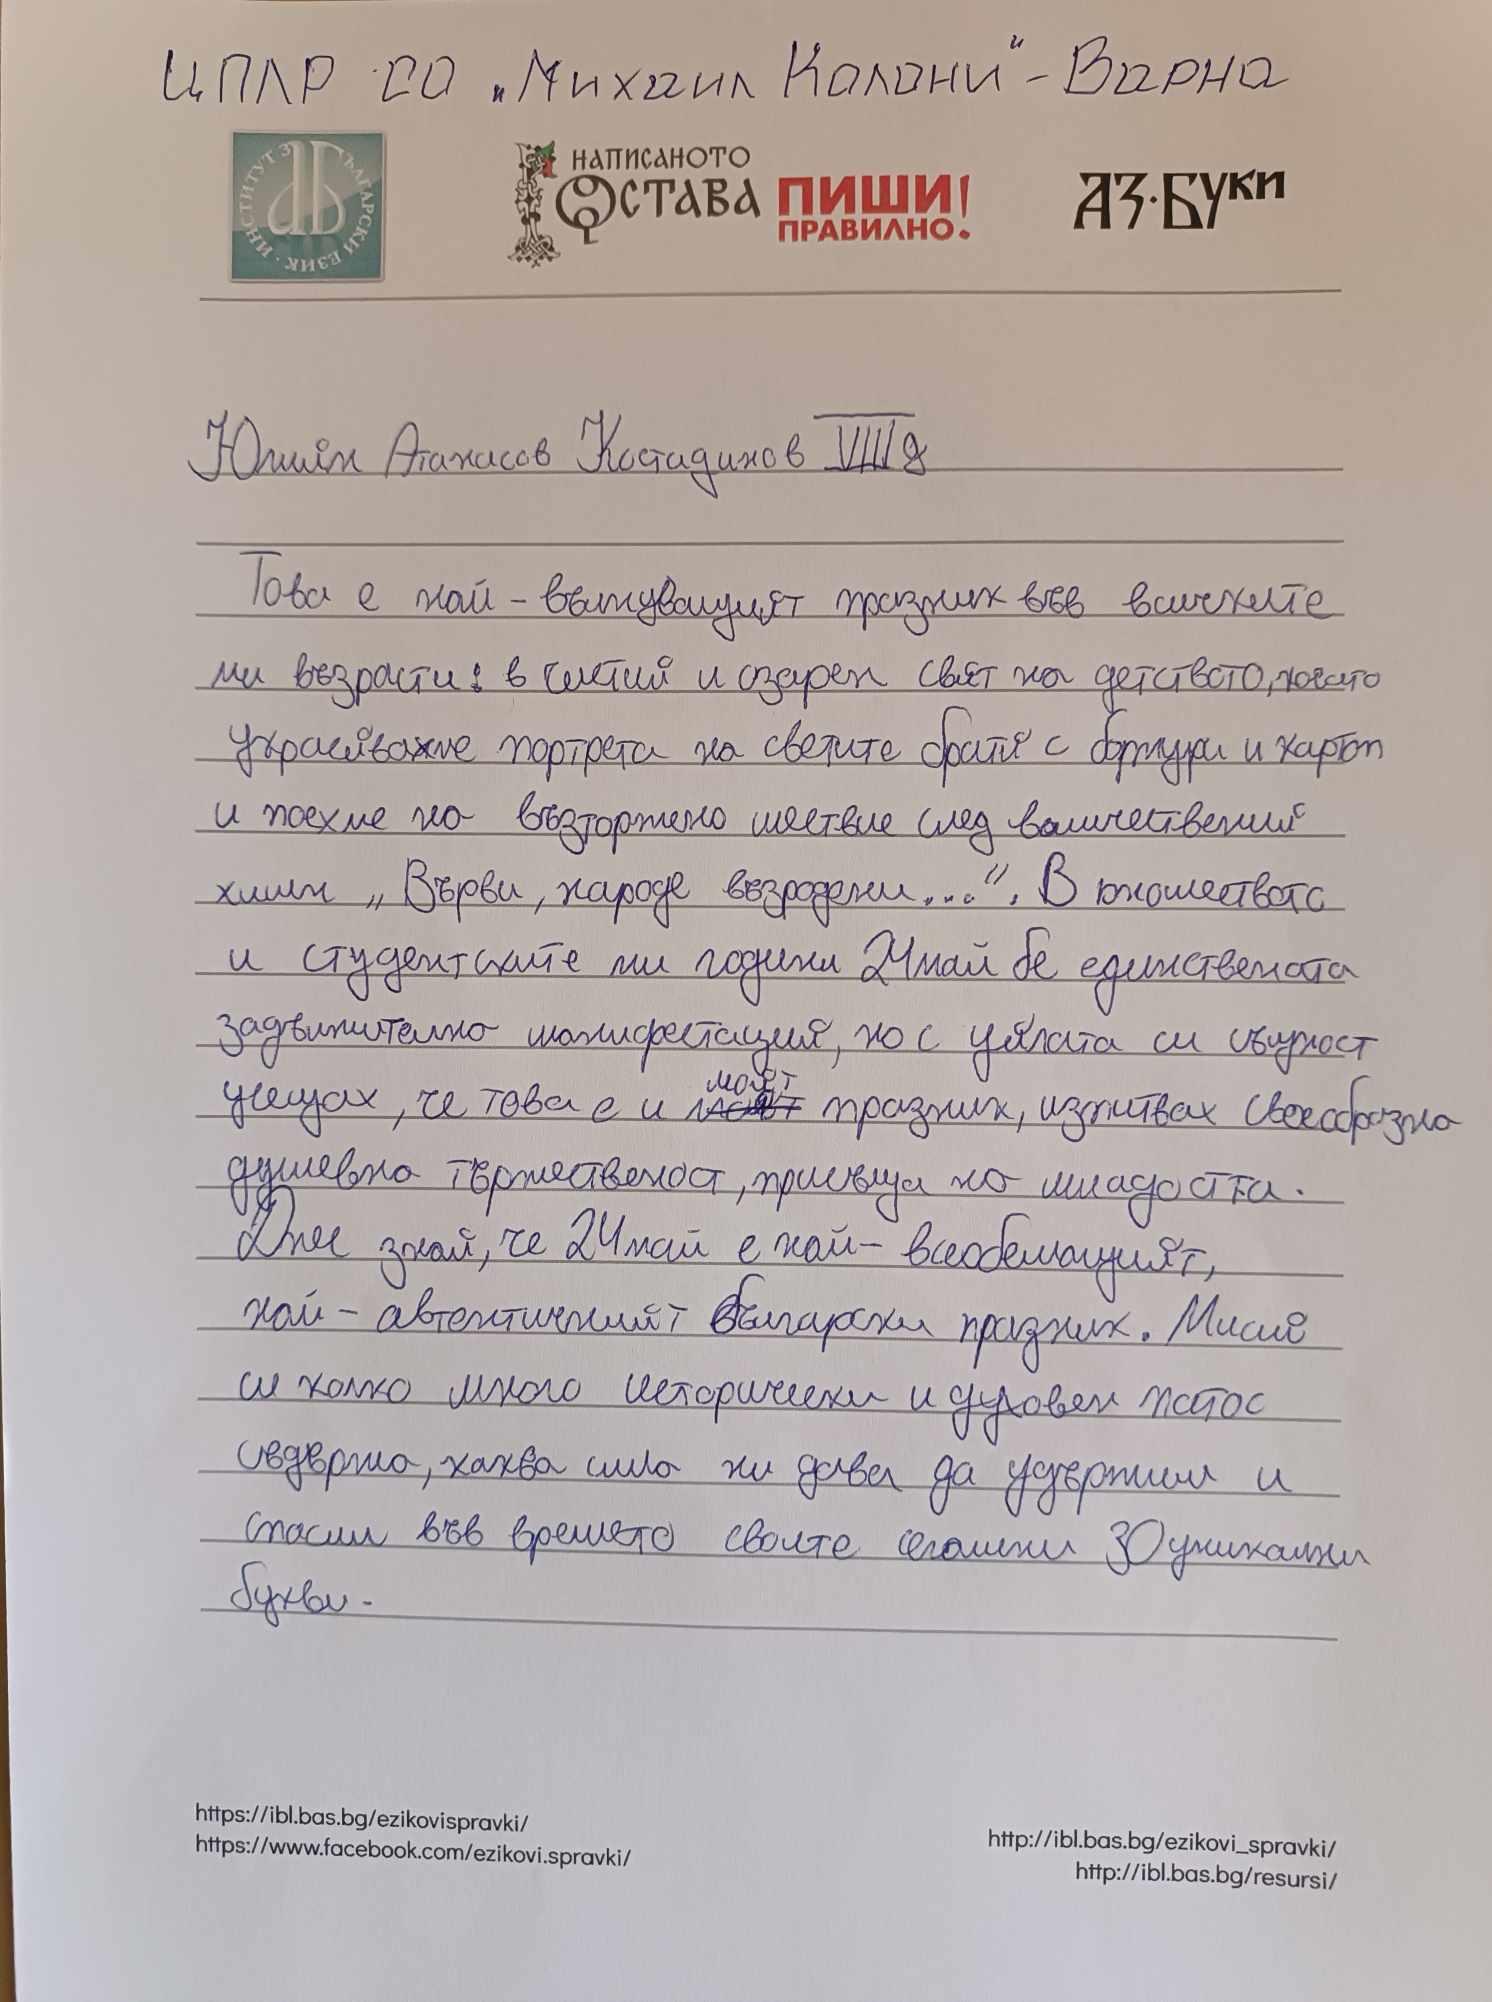 ЦПЛР СО „Михаил Колони“ - Варна
ИНСТИТУТ ЗА БЪЛГАРСКИ ЕЗИК
НАПИСАНОТО
ОСТАВА
ПИШИ
ПРАВИЛНО!
АЗ·БУКИ
Юлиян Атанасов Костадинов VIII д
Това е най-вълнуващият празник във всичките
ми възрасти: в чистия и озарен свят на детството, когато
украсявахме портрета на светите братя с божури и карton
и поехме на възторжено шествие след величествения
химн „Върви, народе възродени...“. В юношеството
и студентските ми години 24 май бе единствената
задължително манифестация, но с цялата си същност
усещах, че това е и моят празник, изпитвах своеобразна
душевна тържественост, присъща на младостта.
Днес зная, че 24 май е най-всеобемащият,
най-автентичният български празник. Мисля
си колко много исторически и духовен патос
съдържа, каква сила ни дава да удържим и
спасим във времето своите сегашни 30 уникални
букви.
https://ibl.bas.bg/ezikovispravki/
https://www.facebook.com/ezikovi.spravki/
http://ibl.bas.bg/ezikovi_spravki/
http://ibl.bas.bg/resursi/